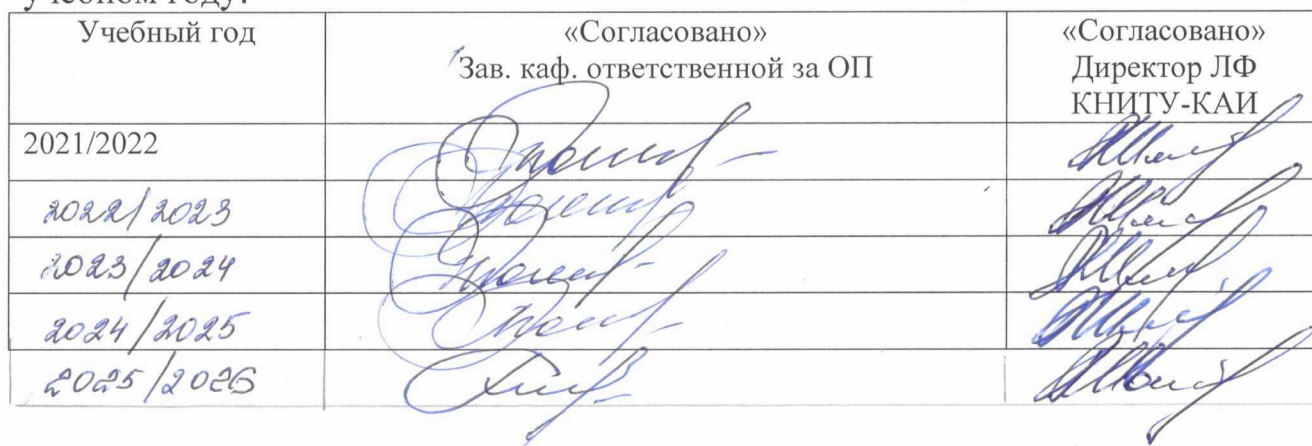 учебном году:
Учебный год
«Согласовано»
Зав. каф. ответственной за ОП
«Согласовано»
Директор ЛФ
КНИТУ-КАИ
2021/2022
2022/2023
2023/2024
2024/2025
2025/2026